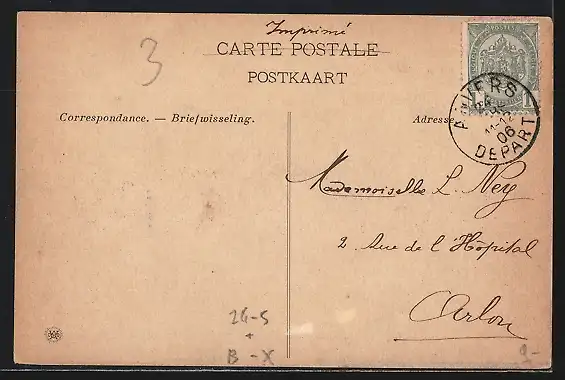 Imprimé
3
CARTE POSTALE
POSTKAART
Correspondance. — Briefwisseling.
Adresse
ANVERS
11-12
06
DEPART
1
Mademoiselle L. Ney
2 Rue de l'Hôpital
Arlon
26-5
+
B-X
9-